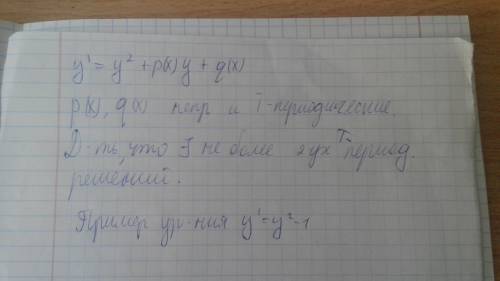 y' = y² + p(x)y + q(x)
p(x), q(x) непр и T-периодические.
Д-ть, что ∃ не более 2ух T период.
решений.
Пример ур-ния y' = y² - 1